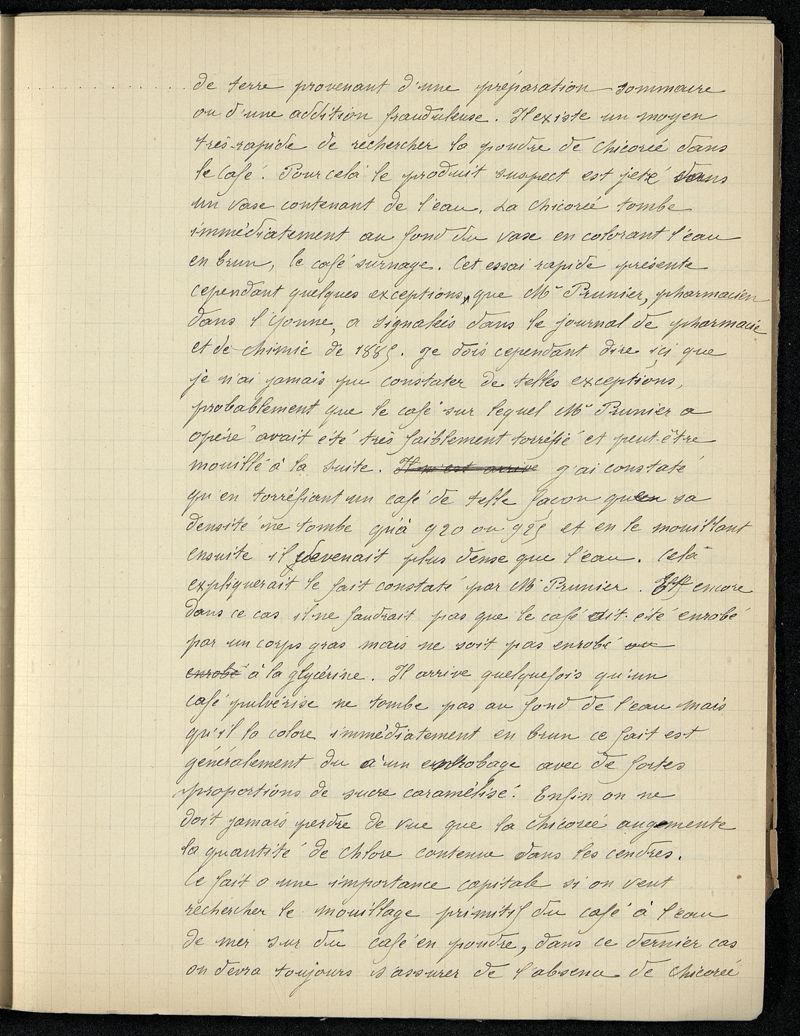 de terre provenant d'une préparation sommaire
ou d'une addition frauduleuse. Il existe un moyen
très-rapide de rechercher la poudre de chicorée dans
le café. Pour celà le produit suspect est jeté dans
un vase contenant de l'eau. La chicorée tombe
immédiatement au fond du vase en colorant l'eau
en brun, le café surnage. Cet essai rapide présente
cependant quelques exceptions, que Mr Prunier, pharmacien
dans l'Yonne, a signalées dans le journal de pharmacie
et de chimie de 1885. Je dois cependant dire içi que
je n'ai jamais pu constater de telles exceptions,
probablement que le café sur lequel Mr Prunier a
opéré avait été très faiblement torréfié et peut-être
mouillé à la suite. Il m'est arrivé j'ai constaté
qu'en torréfiant un café de telle façon que sa
densité ne tombe qu'à 920 ou 925 et en le mouillant
ensuite il devenait plus dense que l'eau. Celà
expliquerait le fait constaté par Mr Prunier. Et encore
dans ce cas il ne faudrait pas que le café ait été enrobé
par un corps gras mais ne soit pas enrobé ou
enrobé à la glycérine. Il arrive quelquefois qu'un
café pulvérisé ne tombe pas au fond de l'eau mais
qu'il la colore immédiatement en brun ce fait est
généralement du à un enrobage avec de fortes
proportions de sucre caramélisé. Enfin on ne
doit jamais perdre de vue que la chicorée augmente
la quantité de chlore contenue dans les cendres.
Ce fait a une importance capitale si on veut
rechercher le mouillage primitif du café à l'eau
de mer sur du café en poudre, dans ce dernier cas
on devra toujours s'assurer de l'absence de chicorée